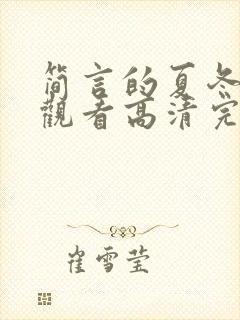 简言的夏冬
觀看高清完
崔雪莹